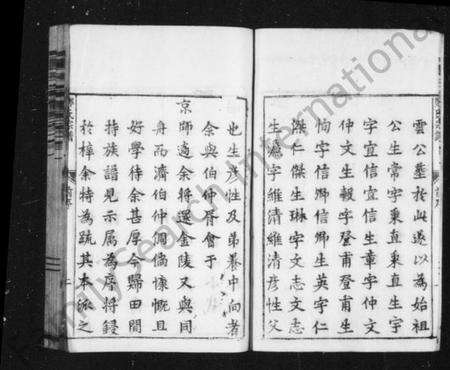 雲公塟於此遂以為始祖
公生常字東直東直生宇
字宜信宜信生章字仲文
仲文生毅字登甫登甫生
恂字信卿信卿生英字仁
傑仁傑生琳字文志文志
生濾字維清維清彥性父
也生彥性及弟養中向者
余與伯仲胥會于
京師邊余將還金陵又與同
舟而濟伯仲倜儻慷慨且
好學待余甚厚今歸田間
持族譜見示屬為序將鋟
於梓余特為疏其本派之
MySearch International